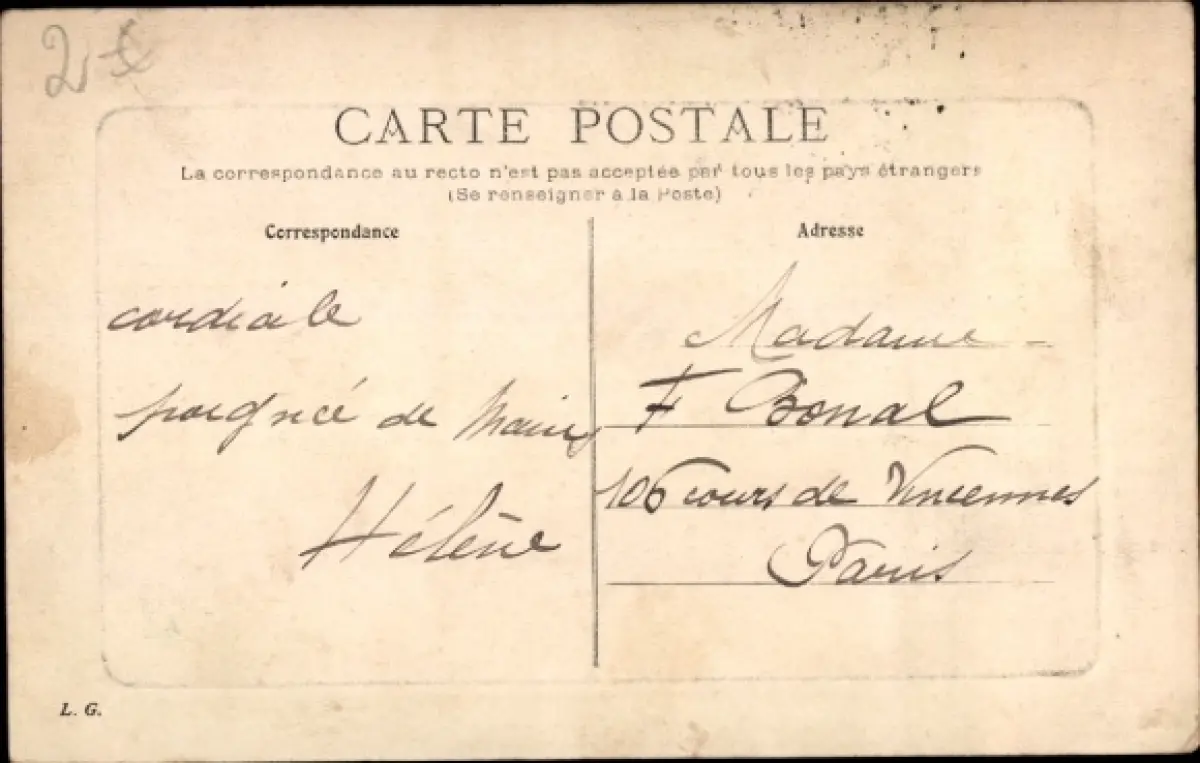 CARTE POSTALE
La correspondance au recto n'est pas acceptée par tous les pays étrangers
(Se renseigner à la Poste)
Correspondance
Adresse
cordiale
poignée de mains
Hélène
Madame
F Bonal
106 cours de Vincennes
Paris
L. G.